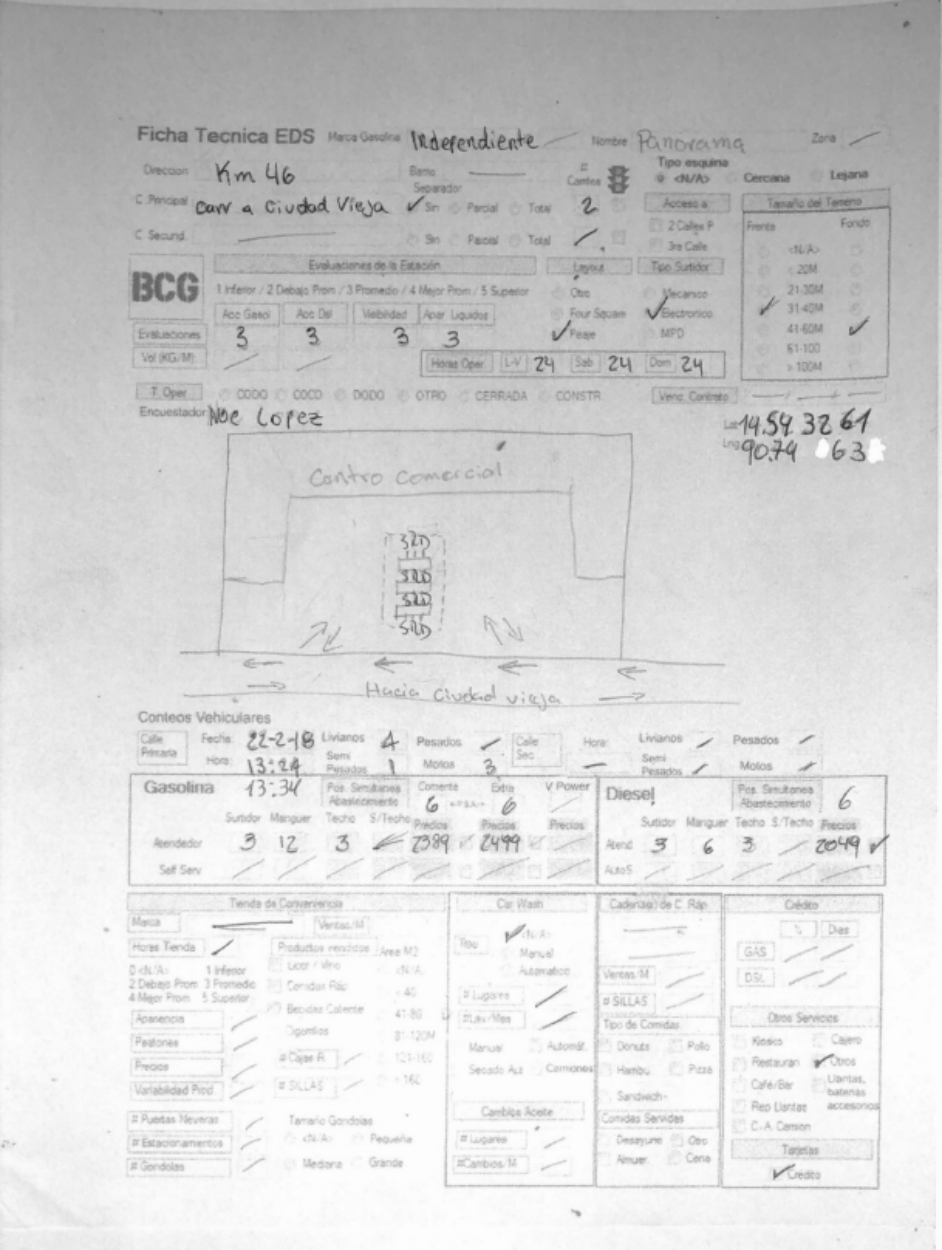 Ficha Tecnica EDS Marca Gasolina Independiente Nombre Panorama Zona
Direccion Km 46 Barrio # Carriles Tipo esquina
<N/A> Cercana Lejana
Separador
C. Principal carr a Ciudad Vieja Sin Parcial Total 2 Acceso a Tamaño del Terreno
2 Calles P Frente Fondo
C. Secund. Sin Parcial Total 3ra Calle <N/A>
BCG Evaluaciones de la Estación Layout Tipo Surtidor < 20M
1 Inferior / 2 Debajo Prom / 3 Promedio / 4 Mejor Prom / 5 Superior Otro Mecanico 21-30M
Acc Gasol Acc Dsl Visibilidad Apar Liquidos Four Square Electronico 31-40M
Evaluaciones 3 3 3 3 Peaje MPD 41-60M
61-100
Vol (KG/M) Horas Oper. L-V 24 Sab 24 Dom 24 > 100M
T. Oper CODO COCO DODO OTRO CERRADA CONSTR Venc. Contrato
Encuestador Noe Lopez
Lat 14.54 32 61
Lng 90.74 63
Centro Comercial
S2D
S2D
S2D
S2D
Hacia Ciudad vieja
Conteos Vehiculares
Calle Primaria Fecha 22-2-18 Livianos 4 Pesados Calle Sec Hora: Livianos Pesados
Hora: 13:24 Semi Pesados 1 Motos 3 Semi Pesados Motos
Gasolina 13:34 Pos. Simultanea Abastecimiento Corriente 6 Extra 6 V Power Diesel Pos. Simultanea Abastecimiento 6
Surtidor Manguer Techo S/Techo Precios Precios Precios Surtidor Manguer Techo S/Techo Precios
Atendedor 3 12 3 2389 2499 Atend 3 6 3 2049
Self Serv AutoS
Tienda de Conveniencia Car Wash Cadena(s) de C. Ráp. Crédito
Marca Ventas/M <N/A> % Dias
Horas Tienda Productos vendidos Area M2 Tipo Manual GAS
0 <N/A> 1 Inferior Licor / Vino <N/A> Automatico Ventas/M DSL
2 Debajo Prom 3 Promedio Comidas Ráp < 40
4 Mejor Prom 5 Superior Bebidas Caliente 41-80 # Lugares # SILLAS
Apariencia Cigarrillos 81-120M #Lav/Mes Tipo de Comidas Otros Servicios
Peatones # Cajas R. 121-160 Manual Automát. Donuts Pollo Kiosko Cajero
Precios # SILLAS > 160 Secado Aut Camiones Hambu. Pizza Restauran Otros
Variabilidad Prod Sandwich Café/Bar Llantas, baterias accesorios
# Puertas Neveras Tamaño Gondolas Cambios Aceite Comidas Servidas Rep Llantas
# Estacionamientos <N/A> Pequeña # Lugares Desayuno Otro C.A. Camion
# Gondolas Mediana Grande #Cambios/M Almuer. Cena Tarjetas
Credito